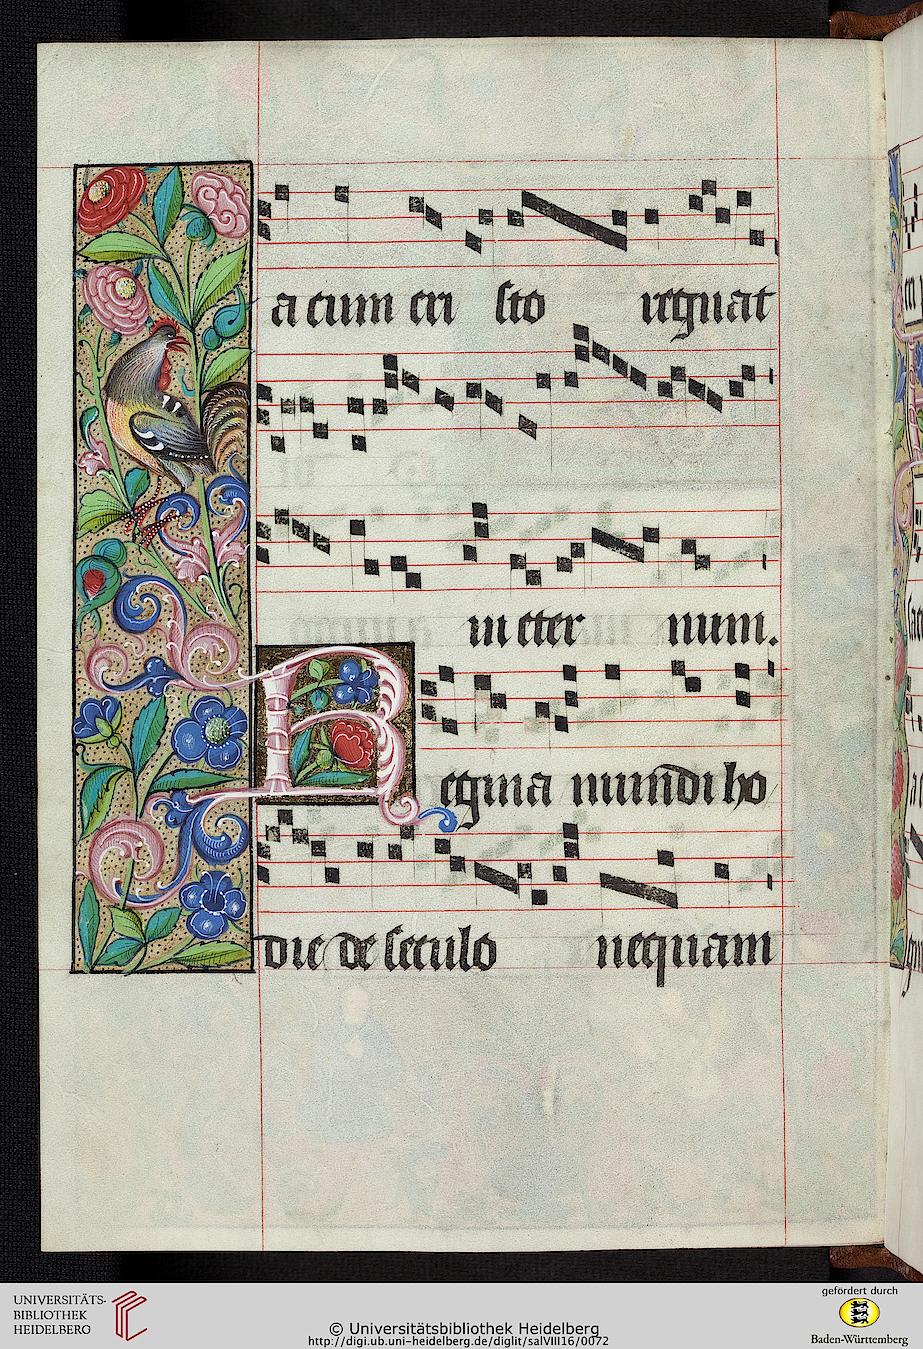 a cum cri sto regnat
in eter num.
Regina mundi ho
die de seculo nequam
UNIVERSITÄTS-
BIBLIOTHEK
HEIDELBERG
© Universitätsbibliothek Heidelberg
http://digi.ub.uni-heidelberg.de/diglit/salVIII16/0072
gefördert durch
Baden-Württemberg